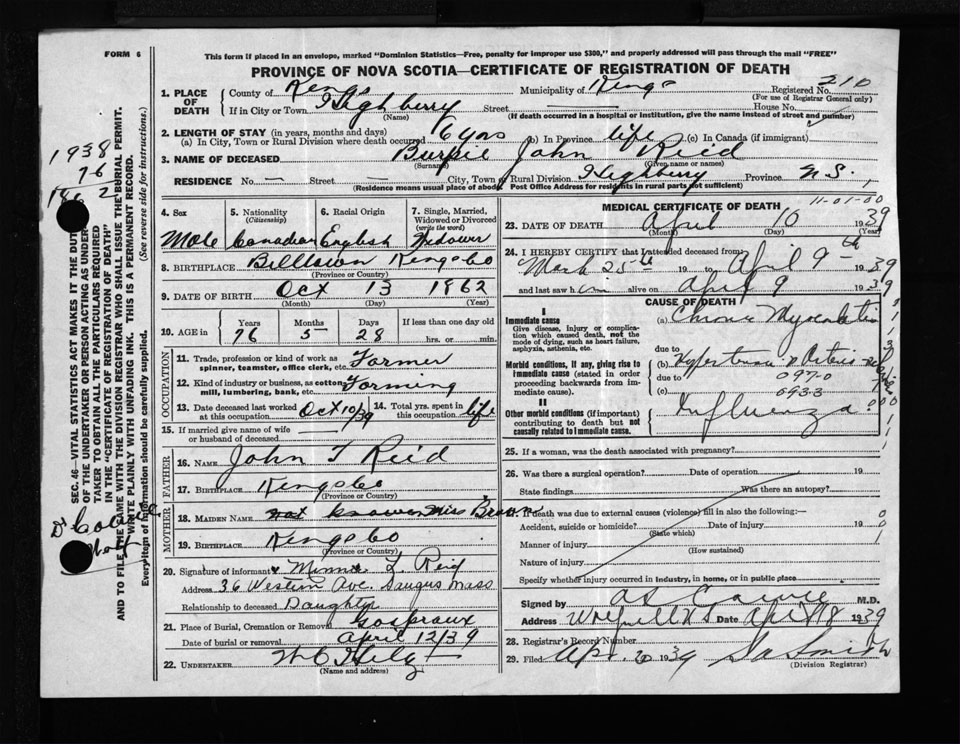 FORM 6
This form if placed in an envelope, marked "Dominion Statistics—Free, penalty for improper use $300," and properly addressed will pass through the mail "FREE"
PROVINCE OF NOVA SCOTIA—CERTIFICATE OF REGISTRATION OF DEATH
1. PLACE OF DEATH
County of Kings Municipality of Kings Registered No. 210
(For use of Registrar General only)
If in City or Town Highberry Street House No.
(Name) (If death occurred in a hospital or institution, give the name instead of street and number)
2. LENGTH OF STAY (in years, months and days)
(a) In City, Town or Rural Division where death occurred 6 yrs (b) In Province life (c) In Canada (if immigrant)
3. NAME OF DECEASED Burpie John Reid
(Surname) (Given name or names)
RESIDENCE No. — Street — City, Town or Rural Division Highberry Province N S.
(Residence means usual place of abode. Post Office Address for residents in rural parts not sufficient)
4. Sex 5. Nationality (Citizenship) 6. Racial Origin 7. Single, Married, Widowed or Divorced (write the word)
Male Canadian English Widower
8. BIRTHPLACE Billtown Kings Co
(Province or Country)
9. DATE OF BIRTH Oct 13 1862
(Month) (Day) (Year)
10. AGE in Years Months Days If less than one day old
76 5 28 hrs. or min.
OCCUPATION
11. Trade, profession or kind of work as spinner, teamster, office clerk, etc. Farmer
12. Kind of industry or business, as cotton mill, lumbering, bank, etc. Farming
13. Date deceased last worked at this occupation Oct 10/39 14. Total yrs. spent in this occupation life
15. If married give name of wife or husband of deceased
FATHER
16. NAME John T Reid
17. BIRTHPLACE Kings Co
(Province or Country)
MOTHER
18. MAIDEN NAME not known Miss Brown
19. BIRTHPLACE Kings Co
(Province or Country)
20. Signature of informant x Minnie L. Reid
Address 36 Western Ave. Saugus Mass
Relationship to deceased Daughter
21. Place of Burial, Cremation or Removal Gaspraux
Date of burial or removal April 12/39
22. UNDERTAKER
(Name and address)
MEDICAL CERTIFICATE OF DEATH
11-01-00
23. DATE OF DEATH April 10 1939
(Month) (Day) (Year)
24. I HEREBY CERTIFY that I attended deceased from
March 25th 19 to April 9th 1939
and last saw him alive on April 9 1939
CAUSE OF DEATH
I
Immediate cause
Give disease, injury or complication which caused death, not the mode of dying, such as heart failure, asphyxia, asthenia, etc.
(a) Chronic Myocarditis
due to
Morbid conditions, if any, giving rise to immediate cause (stated in order proceeding backwards from immediate cause).
(b)
due to 097-0
(c) 093-3
II
Other morbid conditions (if important) contributing to death but not causally related to immediate cause.
Influenza
25. If a woman, was the death associated with pregnancy?
26. Was there a surgical operation? Date of operation 19
State findings Was there an autopsy?
27. If death was due to external causes (violence) fill in also the following:
Accident, suicide or homicide? Date of injury 19
(State which)
Manner of injury
(How sustained)
Nature of injury
Specify whether injury occurred in industry, in home, or in public place
Signed by M.D.
Address Wolfville N S Date April 18 1939
28. Registrar's Record Number
29. Filed Apr. 1939 S A Smith
(Division Registrar)
1938
76
1862
SEC. 46—VITAL STATISTICS ACT MAKES IT THE DUTY
OF THE UNDERTAKER OR PERSON ACTING AS UNDERTAKER TO OBTAIN ALL THE PARTICULARS REQUIRED
IN THE "CERTIFICATE OF REGISTRATION OF DEATH"
AND TO FILE THE SAME WITH THE DIVISION REGISTRAR WHO SHALL ISSUE THE BURIAL PERMIT.
WRITE PLAINLY WITH UNFADING INK. THIS IS A PERMANENT RECORD.
Every item of information should be carefully supplied. (See reverse side for instructions.)